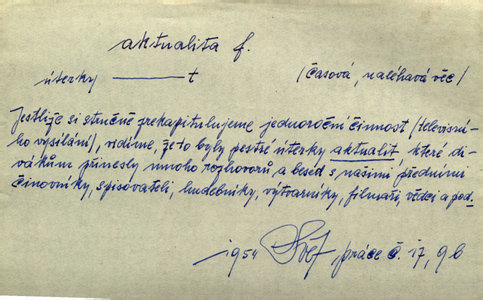 aktualita f.
úterky ——— t (časová, naléhavá věc)
Jestliže si stručně zrekapitulujeme jednoroční činnost (televisní-
ho vysílání), vidíme, že to byly pestré úterky aktualit, které di-
vákům přinesly mnoho rozhovorů a besed s našimi předními
činovníky, spisovateli, hudebníky, výtvarníky, filmaři, vědci a pod.
1954 Svět práce č. 17, 9b